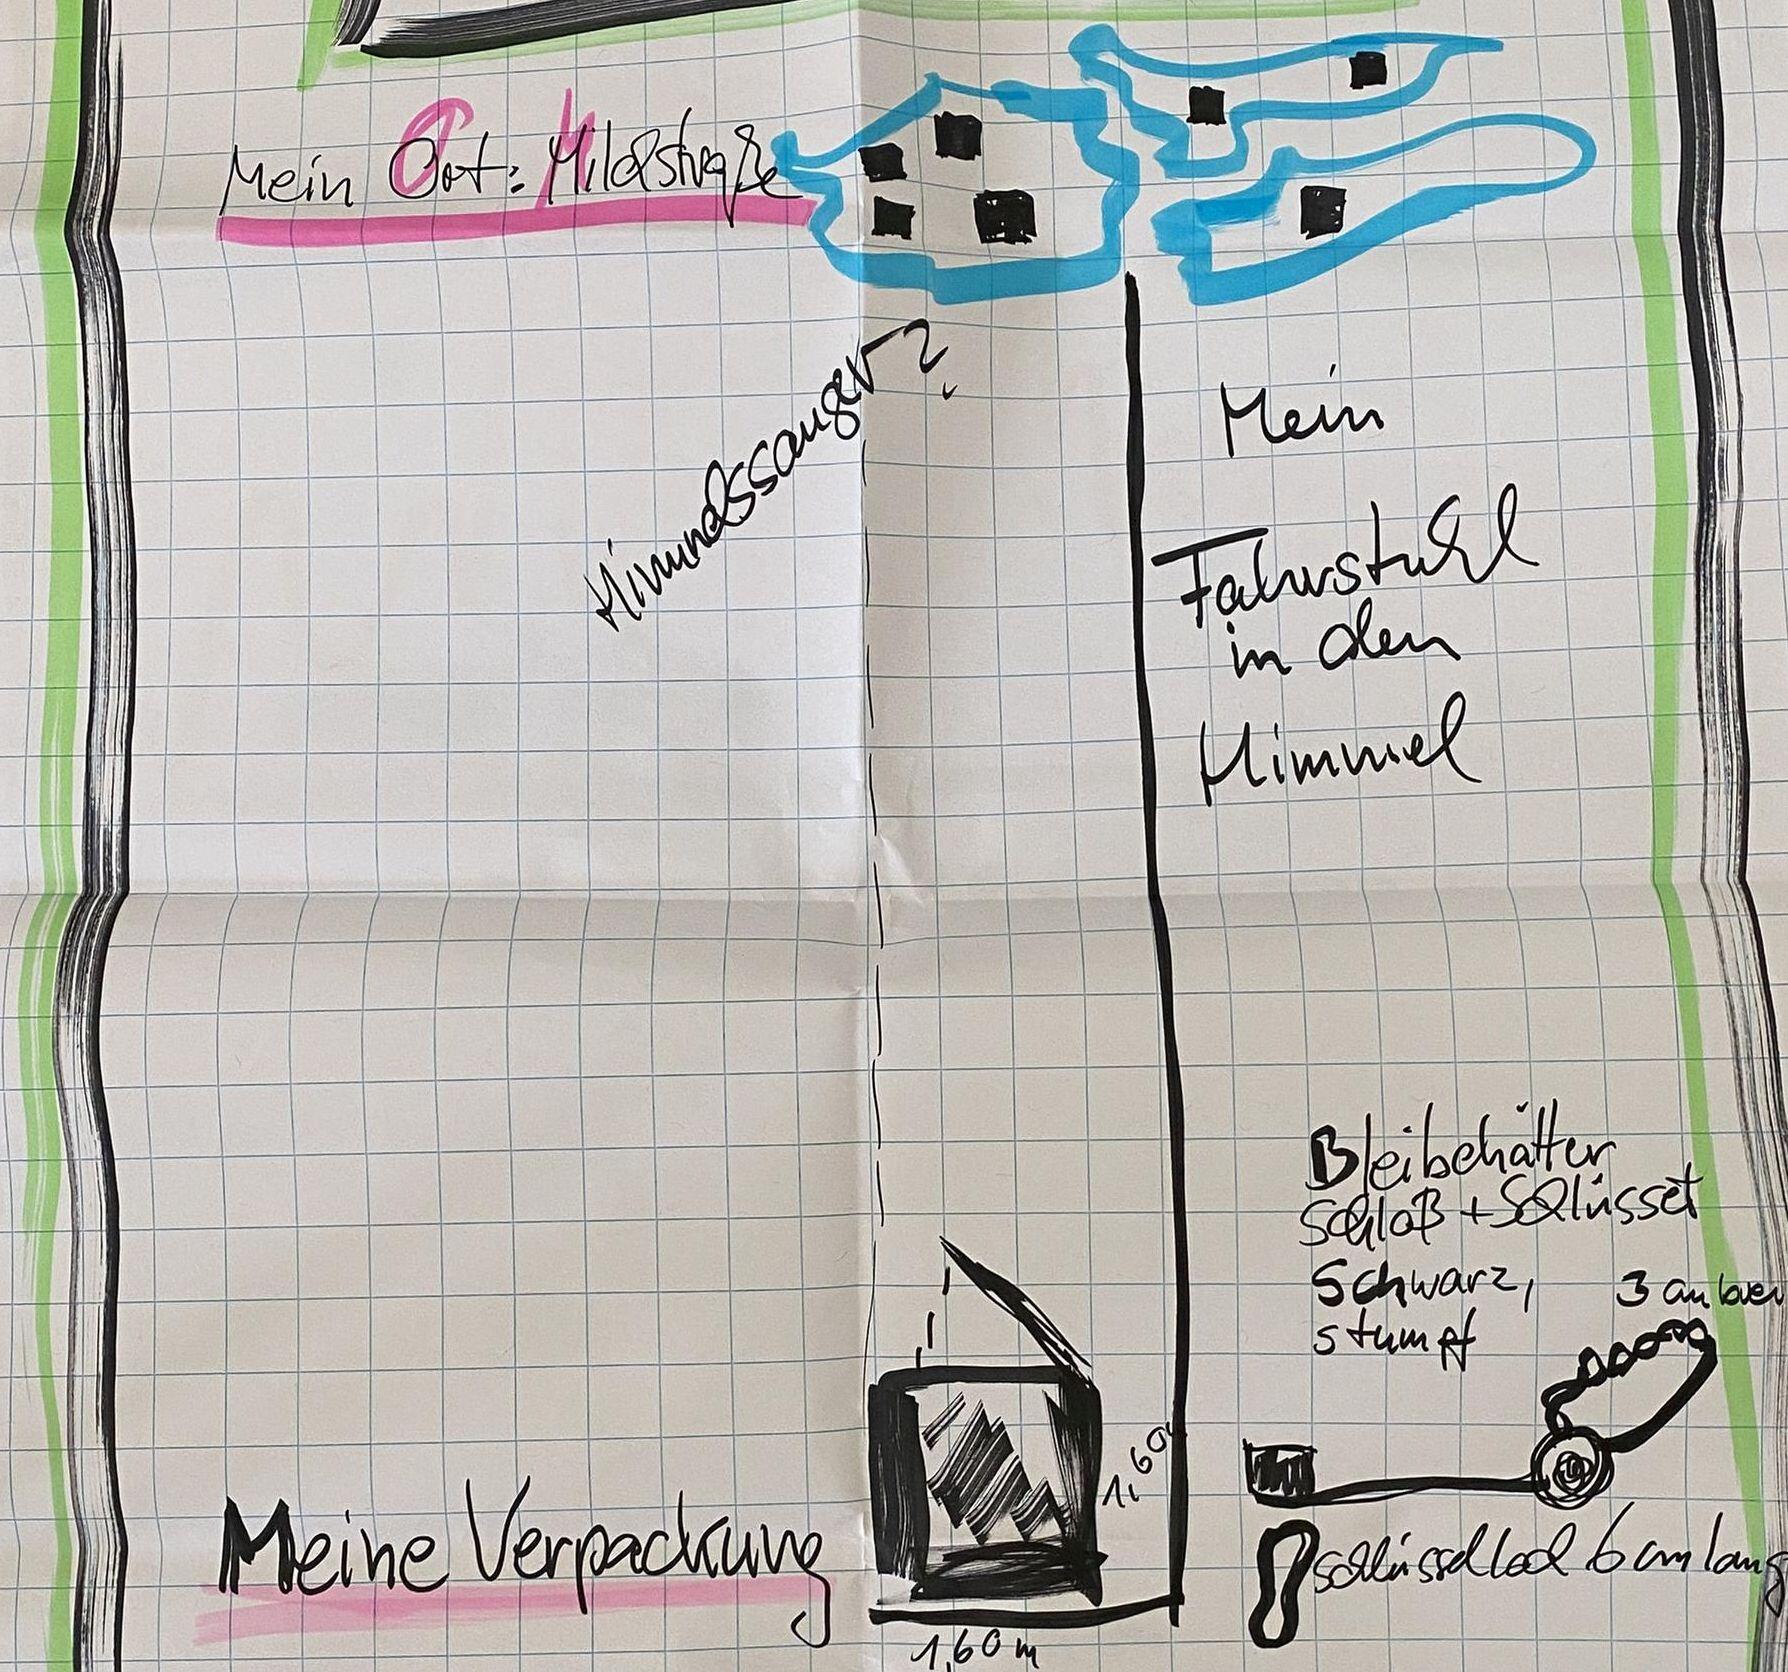 Mein Ort: Milchstraße
Himmelssauger?
Mein
Fahrstuhl
in den
Himmel
Bleibehälter
Schloß + Schlüssel
Schwarz,
stumpf
3 cm
1,60
Meine Verpackung
Schlüsselloch 6 cm lang
1,60 m